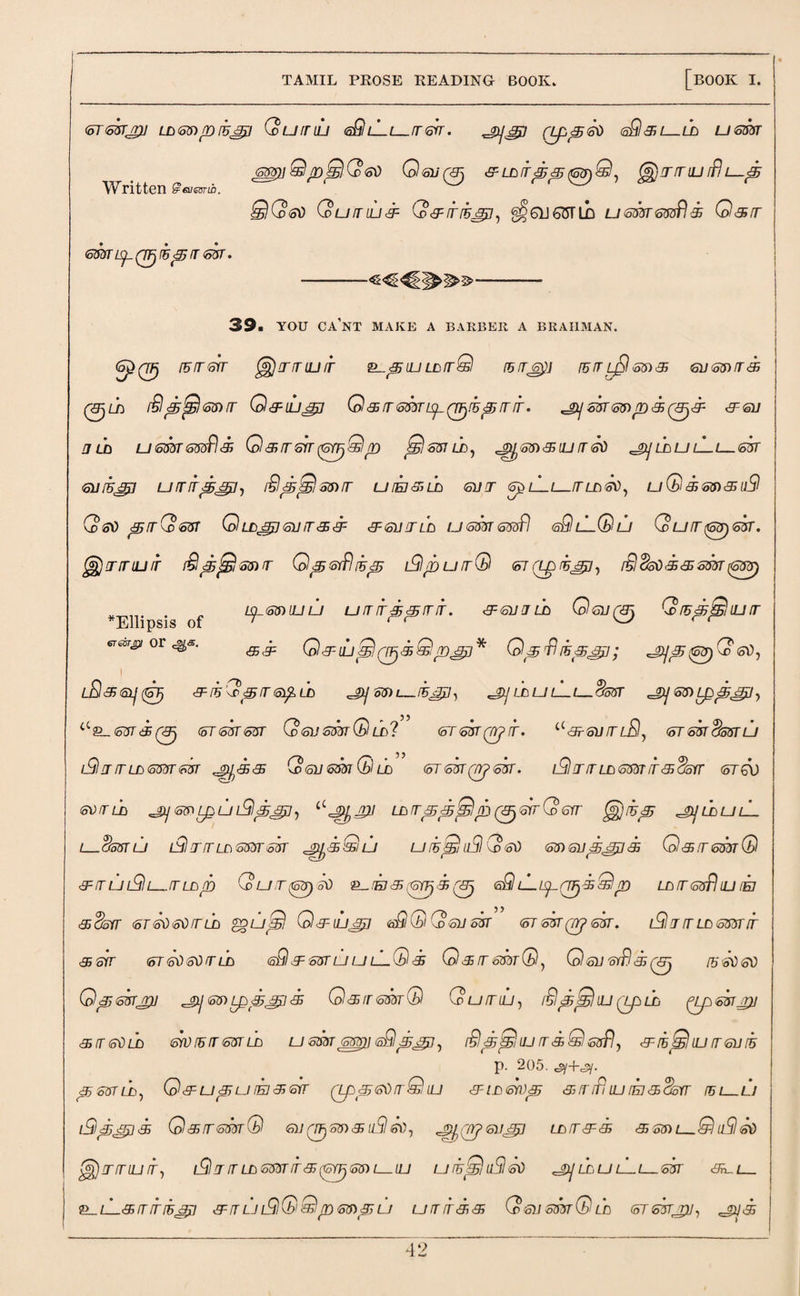 TAMIL PROSE READING BOOK. [BOOK I.
என்று மறைந்து போய் விட்டாள். அது முதல் விகடம் பண்
ணுகிறதிலே வெகு சமர்த்தனாகி, இராயரிடத்
Written சீவனம்.
திலே போய்ச் சேர்ந்து, ஜீவனம் பண்ணிக் கொ
ண்டிருந்தான்.
39. YOU CA'NT MAKE A BARBER A BRAHMAN.
ஒரு நாள் இராயர் உதயமாகி நாலு நாழிகை வரைக்
கும் நித்திரை செய்து கொண்டிருந்தார். அன்றைக்குச் சவ
ரம் பண்ணிக் கொள்ளுகிற தினம், ஆகையால் அம்பட்டன்
வந்து பார்த்து, நித்திரை பங்கம் வர ஒட்டாமல், படுக்கையி
லே தானே மெதுவாகச் சவரம் பண்ணி விட்டுப் போனான்.
இராயர் நித்திரை தெளிந்த பிற்பாடு எழுந்து, நிலைக்கண்ணா
டியைப் பார்த்தார். சவரம் வெகு நேத்தியா
*Ellipsis of என்று or ஆக.
கச் செய்திருக்கிறது* தெரிந்தது; அதனாலே,
மிகவுஞ் சந்தோஷம் அடைந்து, அம்பட்டனை அழைத்து,
“உனக்கு என்ன வேண்டும்?” என்றார். “சுவாமி, என்னைப்
பிராமணன் ஆக்க வேண்டும்” என்றான். பிராமணர்களை எல்
லாம் அழைப்பித்து, “ஆறு மாதத்திற்குள்ளே இந்த அம்பட்
டனைப் பிராமணன் ஆக்கிப் பந்தியிலே வைத்துக் கொண்டு
சாப்பிடாமற் போனால் உங்களுக்கு விட்டிருக்கிற மானியங்
களை எல்லாம் ஜப்தி செய்து விடுவேன்” என்றான். பிராமணர்
கள் எல்லாம் விசனப் பட்டுக் கொண்டு, வெளிக்கு நல்ல
தென்று அழைத்துக் கொண்டு போய், நித்தியமும் மூன்று
காலம் ஸ்நானம் பண்ணுவித்து, நித்தியாக்கினி, சந்தியாவந்
p. 205. அ+அ.
தனம், செபதபங்கள் முதலாகிய சமஸ்த காரியங்களை நடப்
பித்துக் கொண்டு வருகையில், ஆறாவது மாசக் கடைசியில்
இராயர், பிராமணர்களுடைய பந்தியில் அம்பட்டன் கூட
உட்கார்ந்து சாப்பிடுகிறதைப் பார்க்க வேண்டும் என்று, அக
42